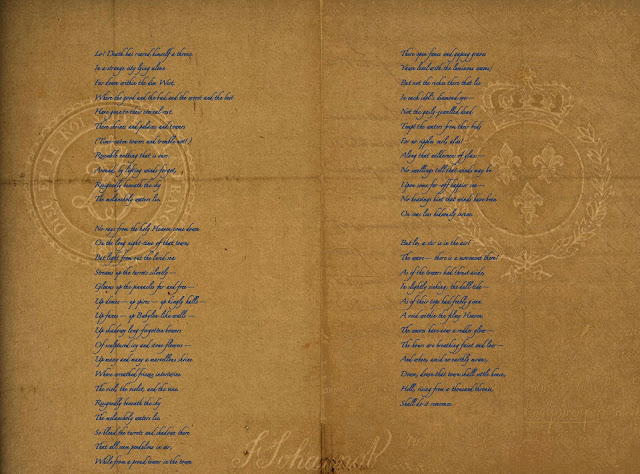 Lo! Death has reared himself a throne
In a strange city lying alone
Far down within the dim West,
Where the good and the bad and the worst and the best
Have gone to their eternal rest.
There shrines and palaces and towers
(Time-eaten towers and tremble not!)
Resemble nothing that is ours.
Around, by lifting winds forgot,
Resignedly beneath the sky
The melancholy waters lie.
No rays from the holy Heaven come down
On the long night-time of that town;
But light from out the lurid sea
Streams up the turrets silently—
Gleams up the pinnacles far and free—
Up domes— up spires— up kingly halls—
Up fanes— up Babylon-like walls—
Up shadowy long-forgotten bowers
Of sculptured ivy and stone flowers—
Up many and many a marvellous shrine
Whose wreathed friezes intertwine
The viol, the violet, and the vine.
Resignedly beneath the sky
The melancholy waters lie.
So blend the turrets and shadows there
That all seem pendulous in air,
While from a proud tower in the town
There open fanes and gaping graves
Yawn level with the luminous waves;
But not the riches there that lie
In each idol's diamond eye—
Not the gaily-jewelled dead
Tempt the waters from their bed;
For no ripples curl, alas!
Along that wilderness of glass—
No swellings tell that winds may be
Upon some far-off happier sea—
No heavings hint that winds have been
On seas less hideously serene.
But lo, a stir is in the air!
The wave— there is a movement there!
As if the towers had thrust aside,
In slightly sinking, the dull tide—
As if their tops had feebly given
A void within the filmy Heaven.
The waves have now a redder glow—
The hours are breathing faint and low—
And when, amid no earthly moans,
Down, down that town shall settle hence,
Hell, rising from a thousand thrones,
Shall do it reverence.